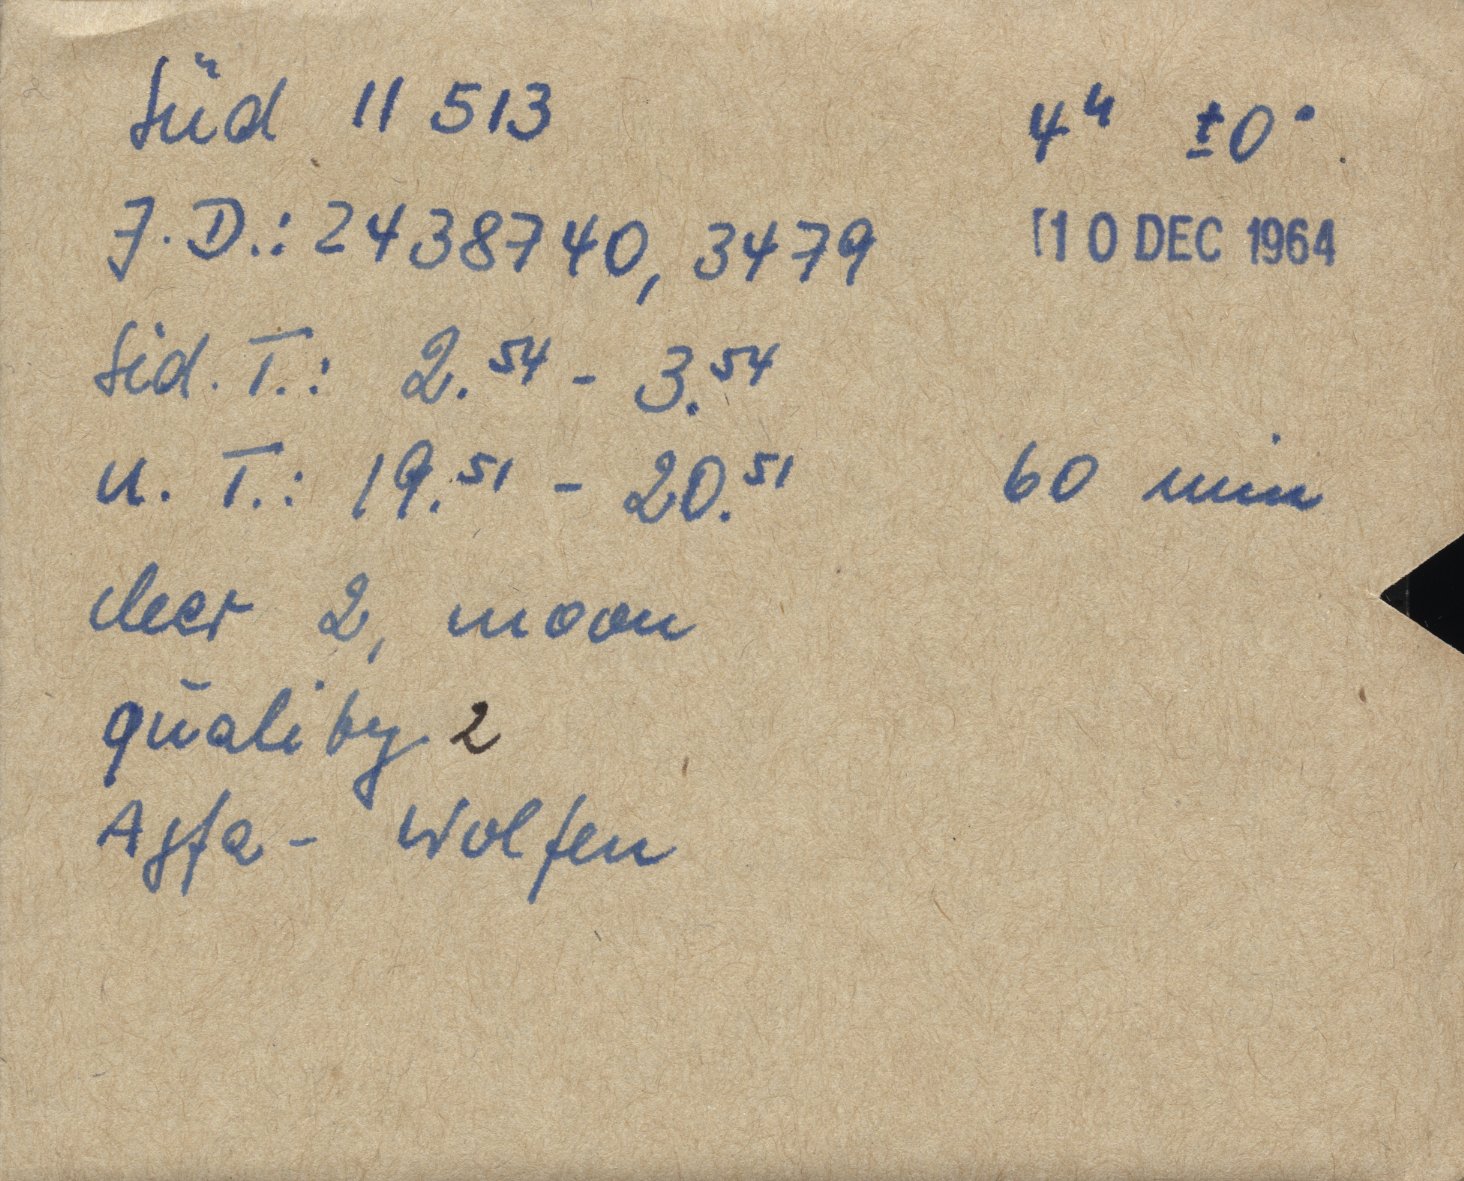 Süd 11 513 4ʰ ±0°
J.D.: 2438740,3479 10 DEC 1964
Sid. T.: 2.⁵⁴ - 3.⁵⁴
U. T.: 19.⁵¹ - 20.⁵¹ 60 min
clear 2, moon
quality 2
Agfa - Wolfen